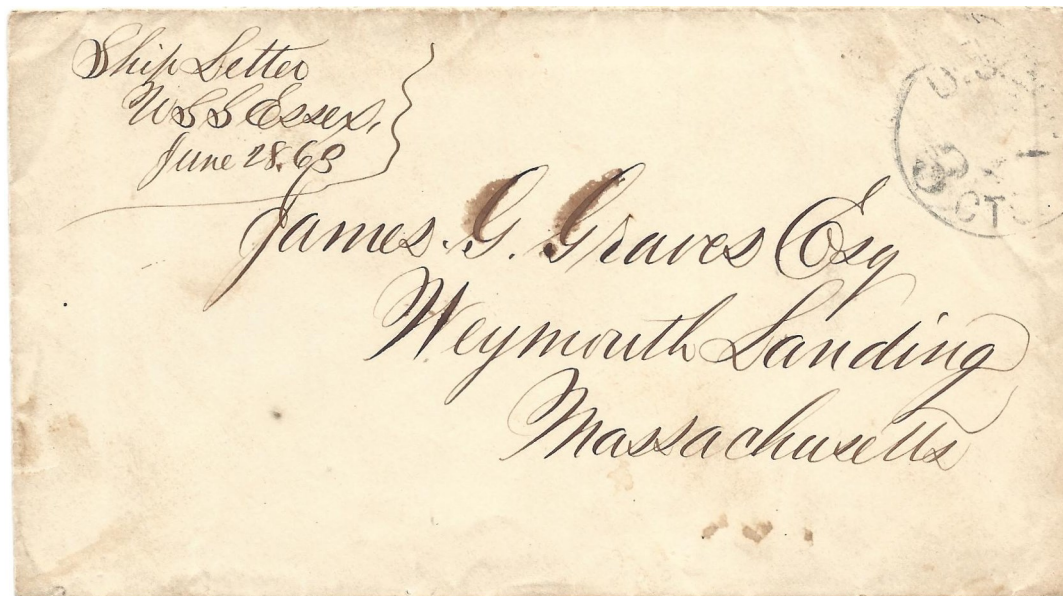 Ship Letter
U.S.S Essex,
June 28. 63
James. G. Graves Esq
Weymouth Landing
Massachusetts
U.S.
CTS